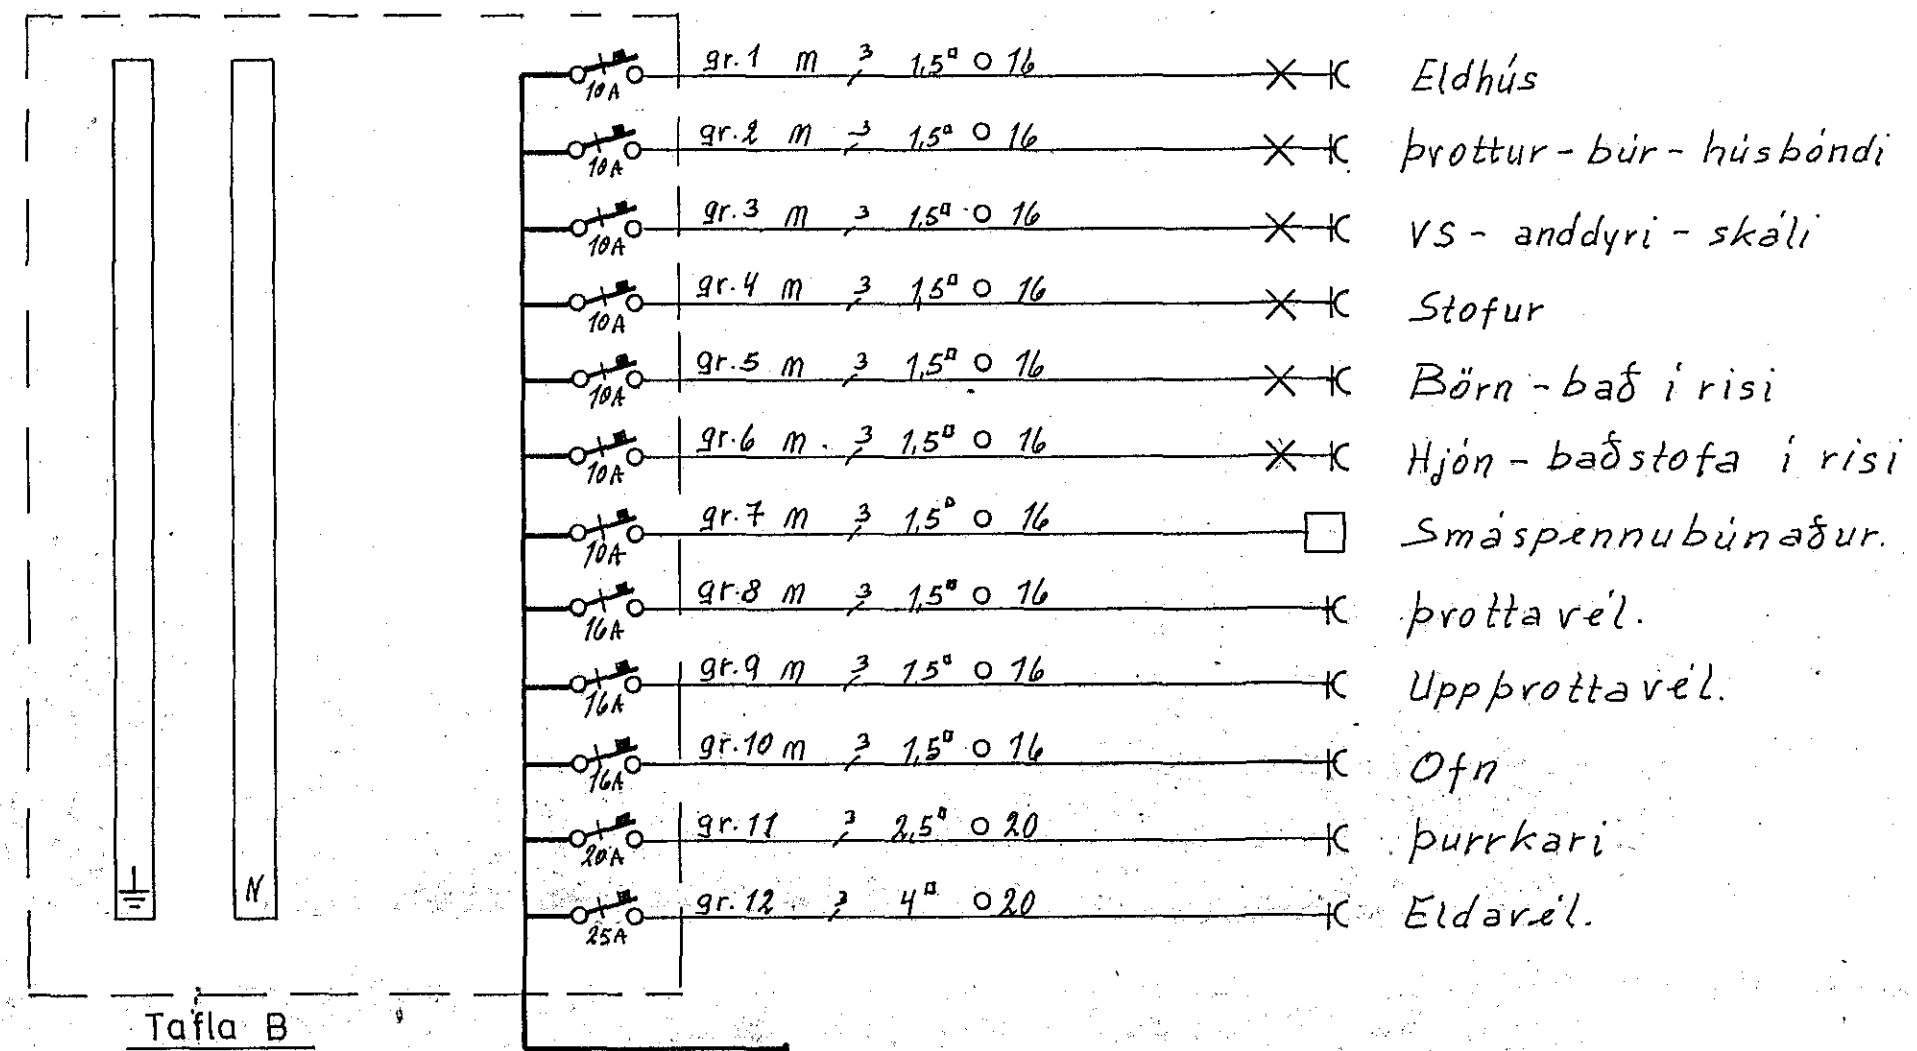 gr.1 m 3 1,5□ O 16 Eldhús
10A
gr.2 m 3 1,5□ O 16 þvottur - búr - húsbóndi
10A
gr.3 m 3 1,5□ O 16 VS - anddyri - skáli
10A
gr.4 m 3 1,5□ O 16 Stofur
10A
gr.5 m 3 1,5□ O 16 Börn - bað í risi
10A
gr.6 m 3 1,5□ O 16 Hjón - baðstofa í risi
10A
gr.7 m 3 1,5□ O 16 Smáspennubúnaður.
10A
gr.8 m 3 1,5□ O 16 þvottavél.
16A
gr.9 m 3 1,5□ O 16 Uppþvottavél.
16A
gr.10 m 3 1,5□ O 16 Ofn
16A
gr.11 3 2,5□ O 20 þurrkari
20A
gr.12 3 4□ O 20 Eldavél.
25A
N
Tafla B